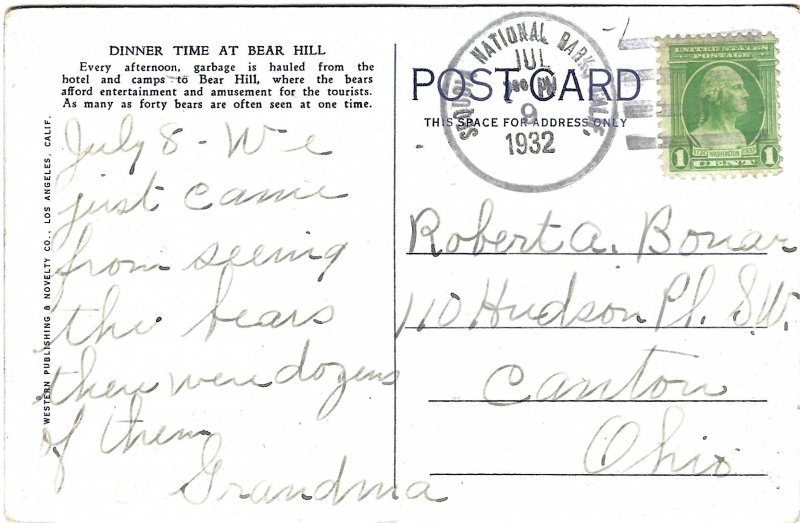 DINNER TIME AT BEAR HILL
Every afternoon, garbage is hauled from the
hotel and camps to Bear Hill, where the bears
afford entertainment and amusement for the tourists.
As many as forty bears are often seen at one time.
WESTERN PUBLISHING & NOVELTY CO., LOS ANGELES, CALIF.
July 8 - We
just came
from seeing
the bears
there were dozens
of them
Grandma
POST CARD
THIS SPACE FOR ADDRESS ONLY
SEQUOIA NATIONAL PARK, CALIF.
JUL
PM
9
1932
UNITED STATES POSTAGE
1732 WASHINGTON 1932
1 CENT 1
Robert A. Bonar
110 Hudson Pl. S.W.
Canton
Ohio